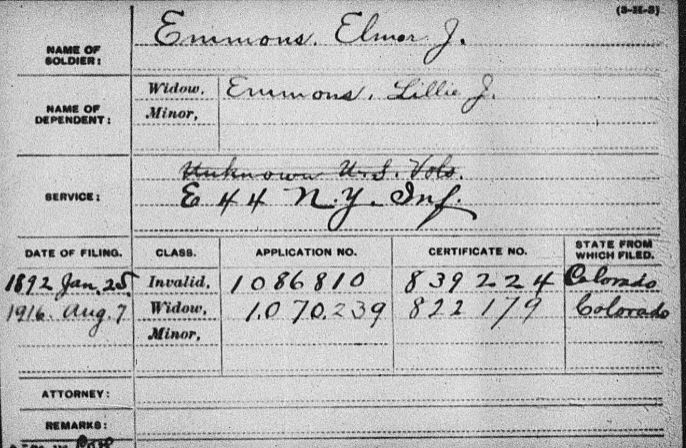 (3-H-3)
NAME OF SOLDIER: Emmons, Elmer J.
NAME OF DEPENDENT: Widow, Emmons, Lillie J.
Minor,
SERVICE: Unknown U.S. Vols.
E 44 N.Y. Inf.
DATE OF FILING. CLASS. APPLICATION NO. CERTIFICATE NO. STATE FROM WHICH FILED.
1892 Jan. 25. Invalid, 1086810 839224 Colorado
1916. Aug. 7 Widow, 1.070.239 822179 Colorado
Minor,
ATTORNEY:
REMARKS: